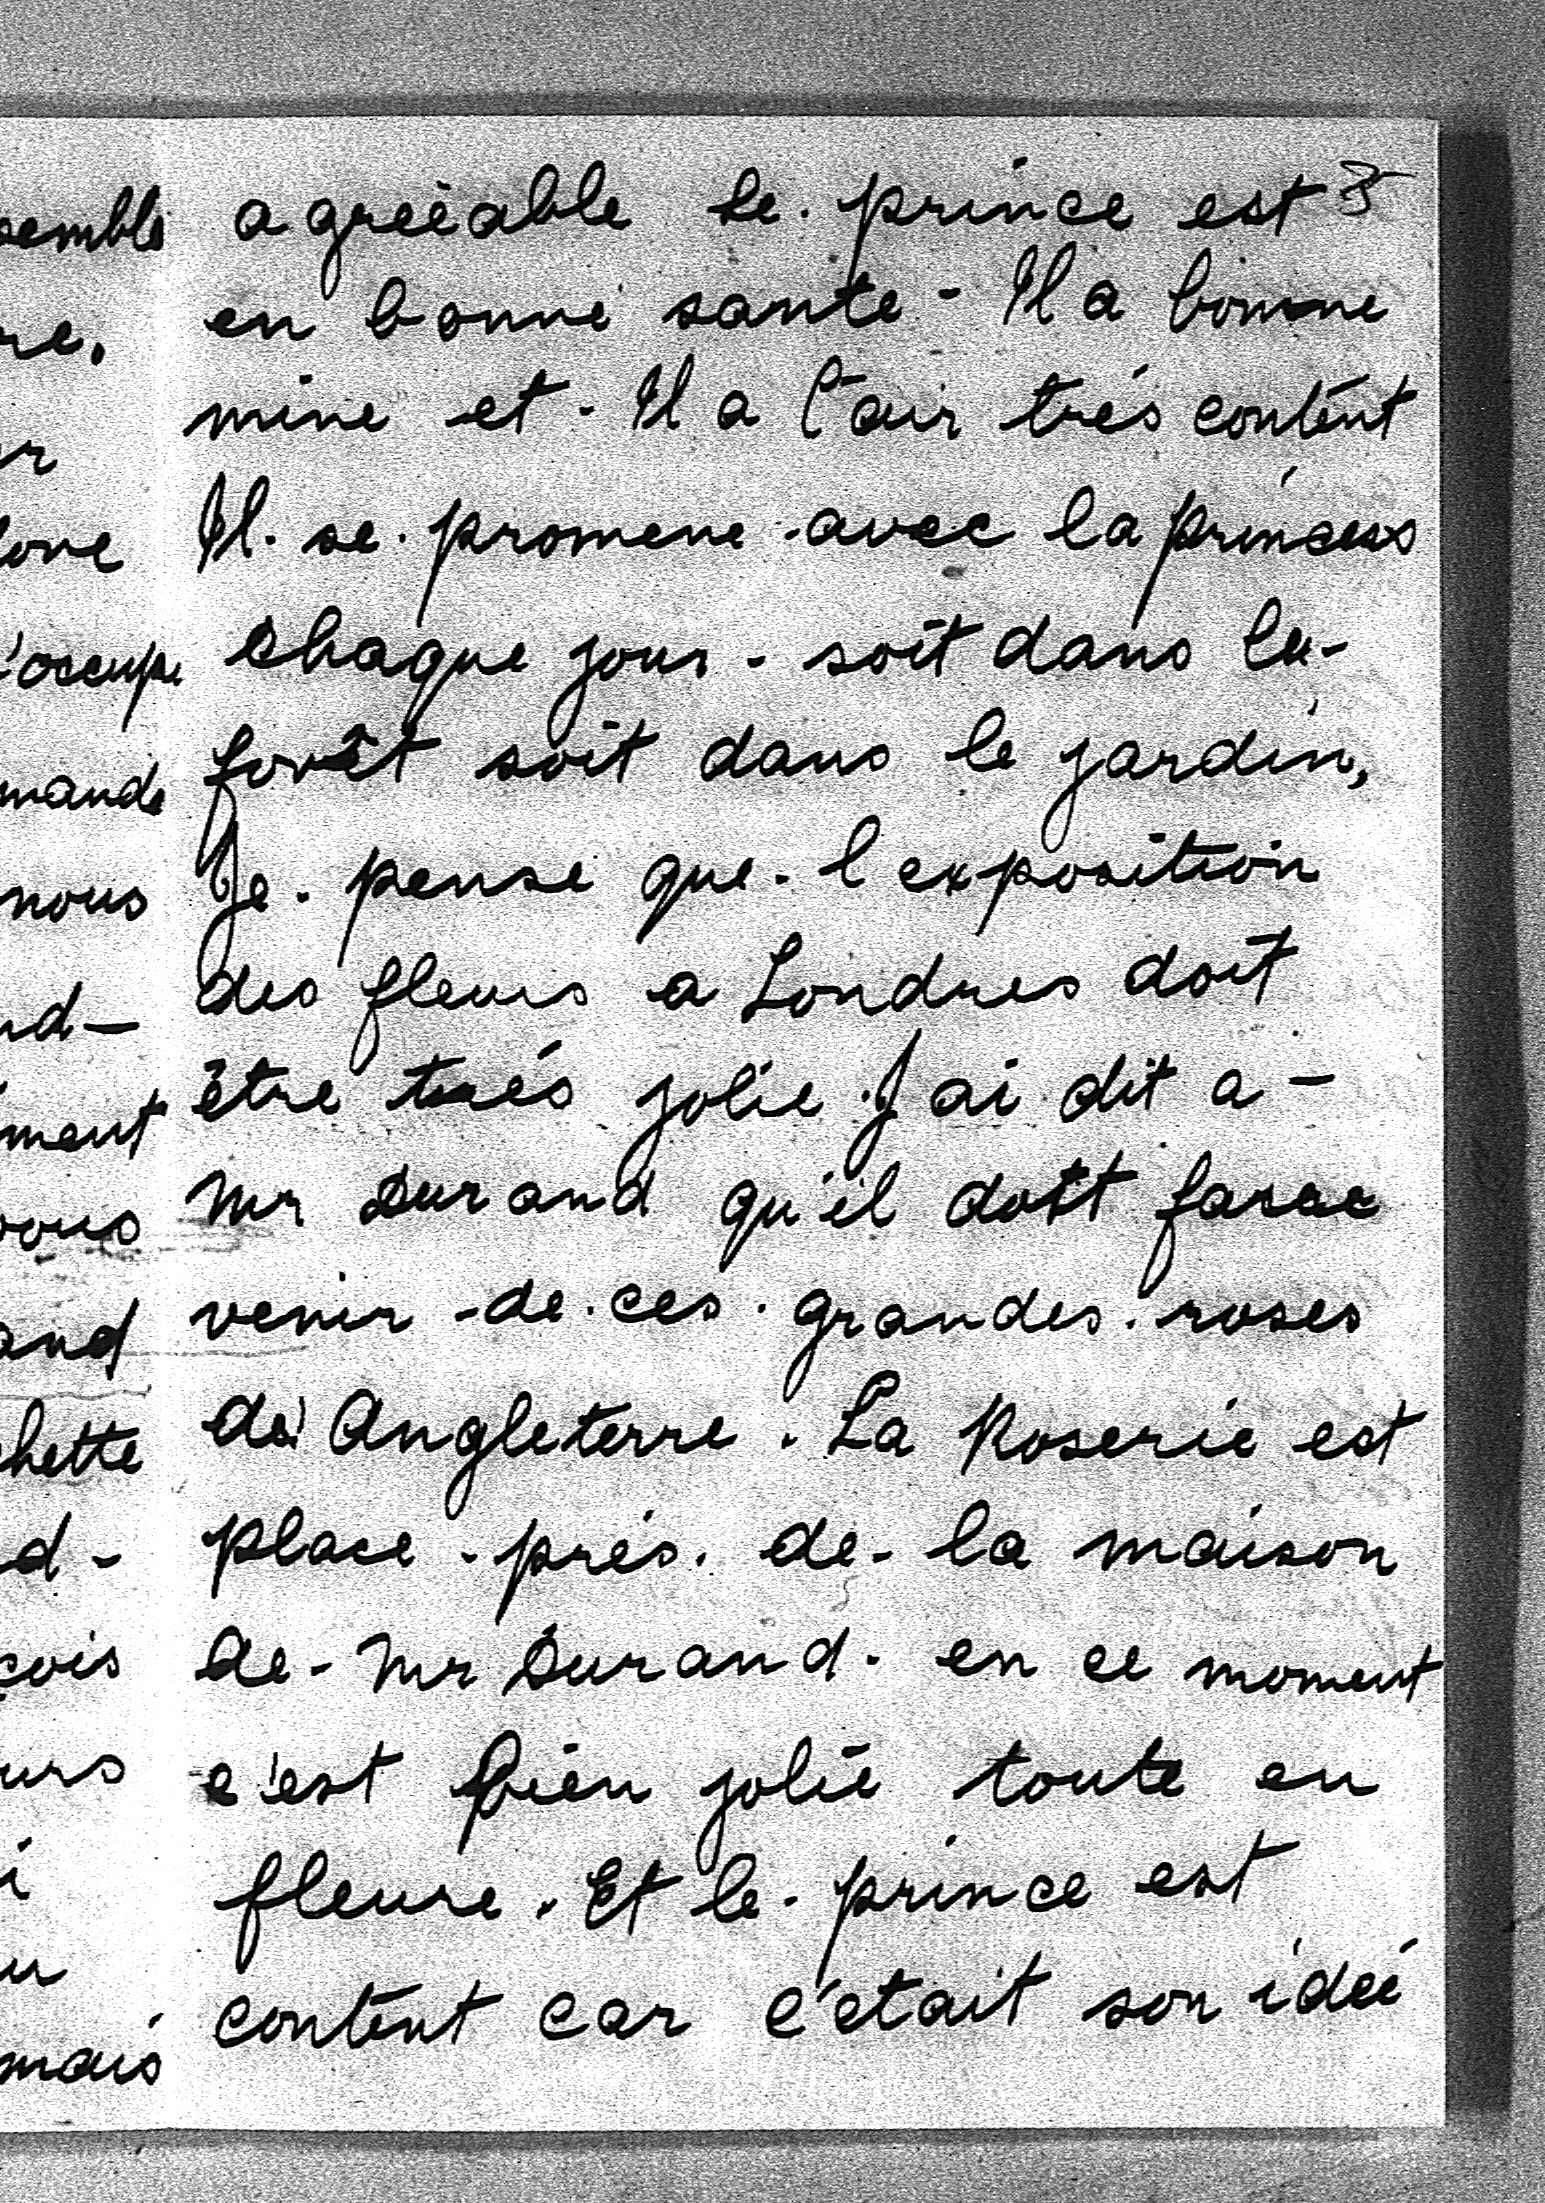 agreèable Le. prince est 3
en bonne sante - Il a bonne
mine et - Il a l'air trés content
Il. se. promene avec la princess
chaque jour - soit dans la -
forêt soit dans le jardin,
Je. pense que. l exposition
des fleurs a Londres doit
être trés jolie. J ai dit a -
Mr Durand qu'il doit
venir - de. ces. grandes. roses
de Angleterre. La Roserie est
place - prés. de - la maison
de - Mr Durand. en ce moment
c'est bien jolie toute en
fleure. Et le. prince est
content car c'etait son idee
semble
re.
r
love
s'occupe
mande
nous
nd -
ment
vous
and
chette
d -
çois
urs
i
u
mais